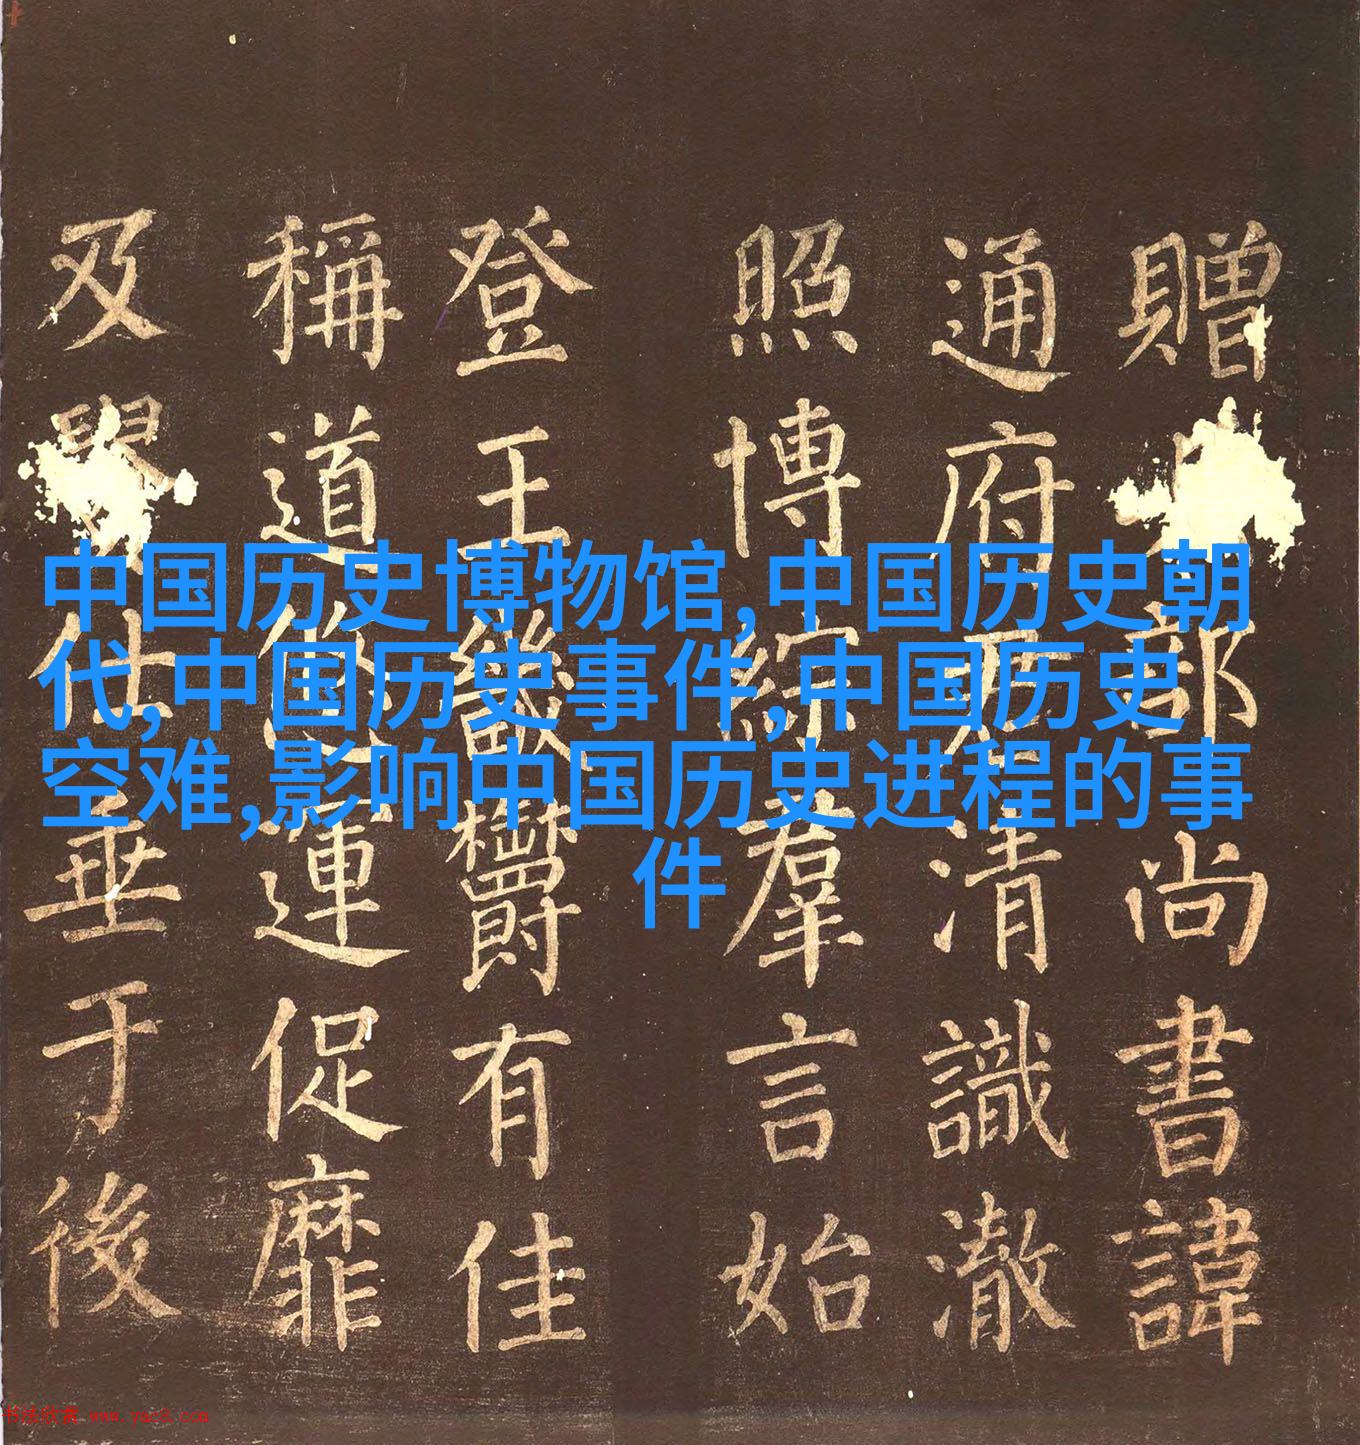 贈部尚書諱
通府君清識澈
照博綜羣言始
登王畿欝有佳
稱道運促靡
及仕垂于後
中国历史博物馆,中国历史朝
代,中国历史事件,中国历史
空难,影响中国历史进程的事
件
书法欣赏 www.yac8.com